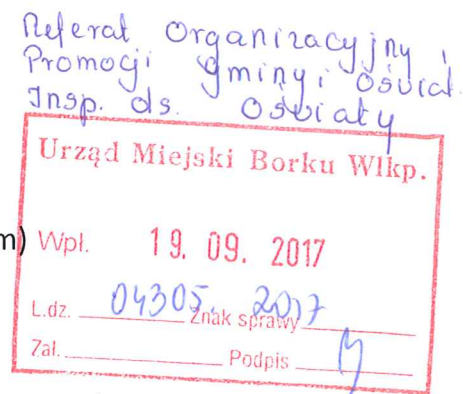 Referat Organizacyjny,
Promocji Gminy i Oświat.
Insp. ds. Oświaty
Urząd Miejski Borku Wlkp.
m) Wpł. 19. 09. 2017
L.dz. 04305. 2017 Znak sprawy
Zał. Podpis